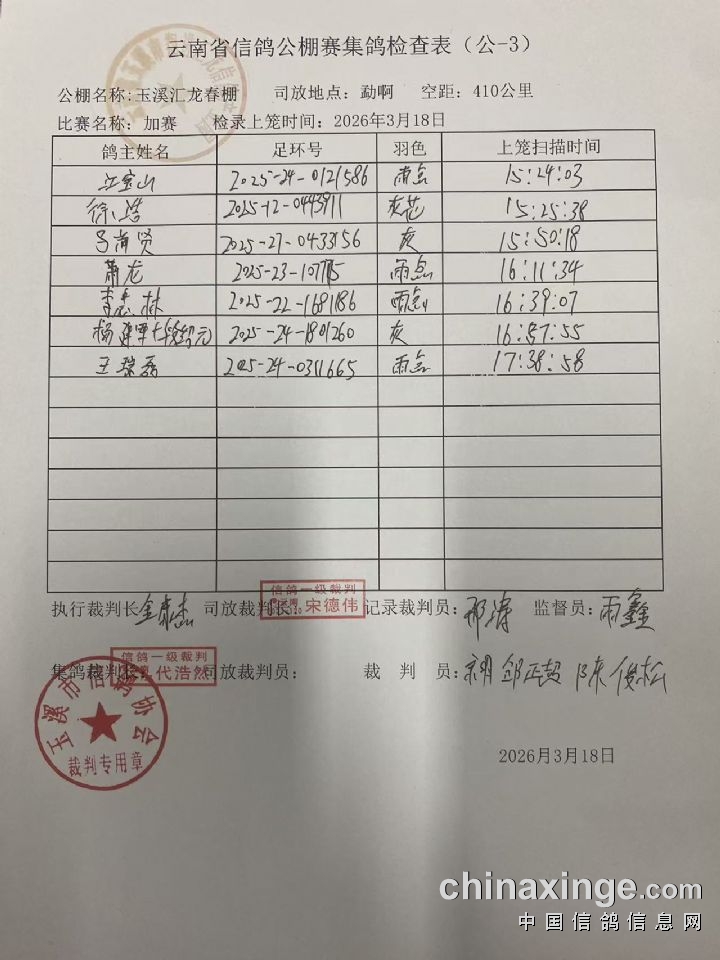 云南省信鸽公棚赛集鸽检查表（公-3）
公棚名称:玉溪汇龙春棚 司放地点：勐啊 空距：410公里
比赛名称：加赛 检录上笼时间：2026年3月18日
鸽主姓名 足环号 羽色 上笼扫描时间
江宝山 2025-24-0121586 雨点 15:24:03
徐浩 2025-12-0443911 灰花 15:25:38
贤 2025-27-0433156 灰 15:50:18
萧龙 2025-23- 雨点 16:11:34
李志林 2025-22-1681186 雨点 16:39:07
杨建军 2025-24-1801260 灰 16:57:55
王琼磊 2025-24-0311665 雨点 17:38:58
信鸽一级裁判
执行裁判长 司放裁判长: 宋德伟 记录裁判员: 邢涛 监督员: 雨鑫
信鸽一级裁判
集鸽裁判长: 代浩然 司放裁判员： 裁 判 员： 邹正超 陈俊松
玉溪市信鸽协会
裁判专用章
2026月3月18日
chinaxinge.com
中国信鸽信息网